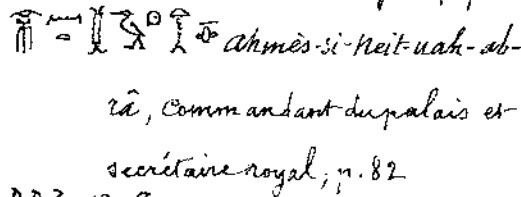 Ahmès-si-Neit-uah-ab-
râ, commandant du palais et
secrétaire royal, p. 82